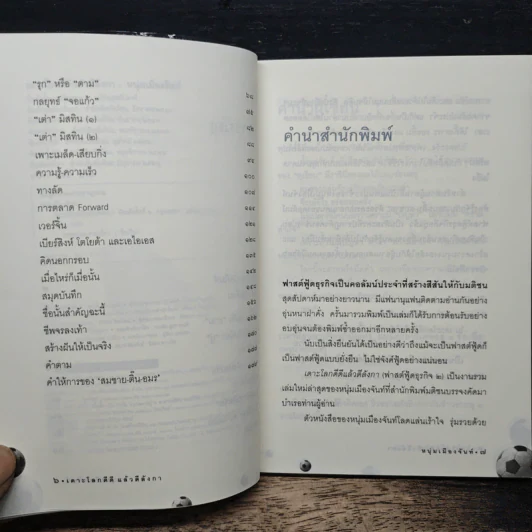 “รุก” หรือ “ตาม” ๖๘
กลยุทธ์ “จอแก้ว”
“เต่า” มิสทิน (๑)
“เต่า” มิสทิน (๒)
เพาะเมล็ด-เสียบกิ่ง
ความรู้-ความเร็ว
ทางลัด
การตลาด Forward
เวอร์จิ้น
เบียร์สิงห์ โตโยต้า และเอไอเอส
คิดนอกกรอบ
เมื่อไหร่ก็เมื่อนั้น
สมุดบันทึก
ชื่อนั้นสำคัญฉะนี้
ชีพจรลงเท้า
สร้างฝันให้เป็นจริง
คำตาม
คำให้การของ “สมชาย-ติ๊น-อมร”
๖ • เตาะโลกดีดี แล้วตีลังกา
คำนำสำนักพิมพ์
ฟาสต์ฟู้ดธุรกิจเป็นคอลัมน์ประจำที่สร้างสีสันให้กับมติชน
สุดสัปดาห์มาอย่างยาวนาน มีแฟนานุแฟนติดตามอ่านกันอย่าง
อุ่นหนาฝาคั่ง ครั้นมารวมพิมพ์เป็นเล่มก็ได้รับการต้อนรับอย่าง
อบอุ่นจนต้องพิมพ์ซ้ำออกมาอีกหลายครั้ง
นับเป็นสิ่งยืนยันได้เป็นอย่างดีว่าถึงแม้จะเป็นฟาสต์ฟู้ดก็
เป็นฟาสต์ฟู้ดแบบยั่งยืน ไม่ใช่จังค์ฟู้ดอย่างแน่นอน
เตาะโลกดีดีแล้วตีลังกา (ฟาสต์ฟู้ดธุรกิจ ๒) เป็นงานรวม
เล่มใหม่ล่าสุดของหนุ่มเมืองจันท์ที่สำนักพิมพ์มติชนบรรจงคัดมา
บำเรอท่านผู้อ่าน
ตัวหนังสือของหนุ่มเมืองจันท์โลดแล่นเร้าใจ รุ่มรวยด้วย
หนุ่มเมืองจันท์ • ๗